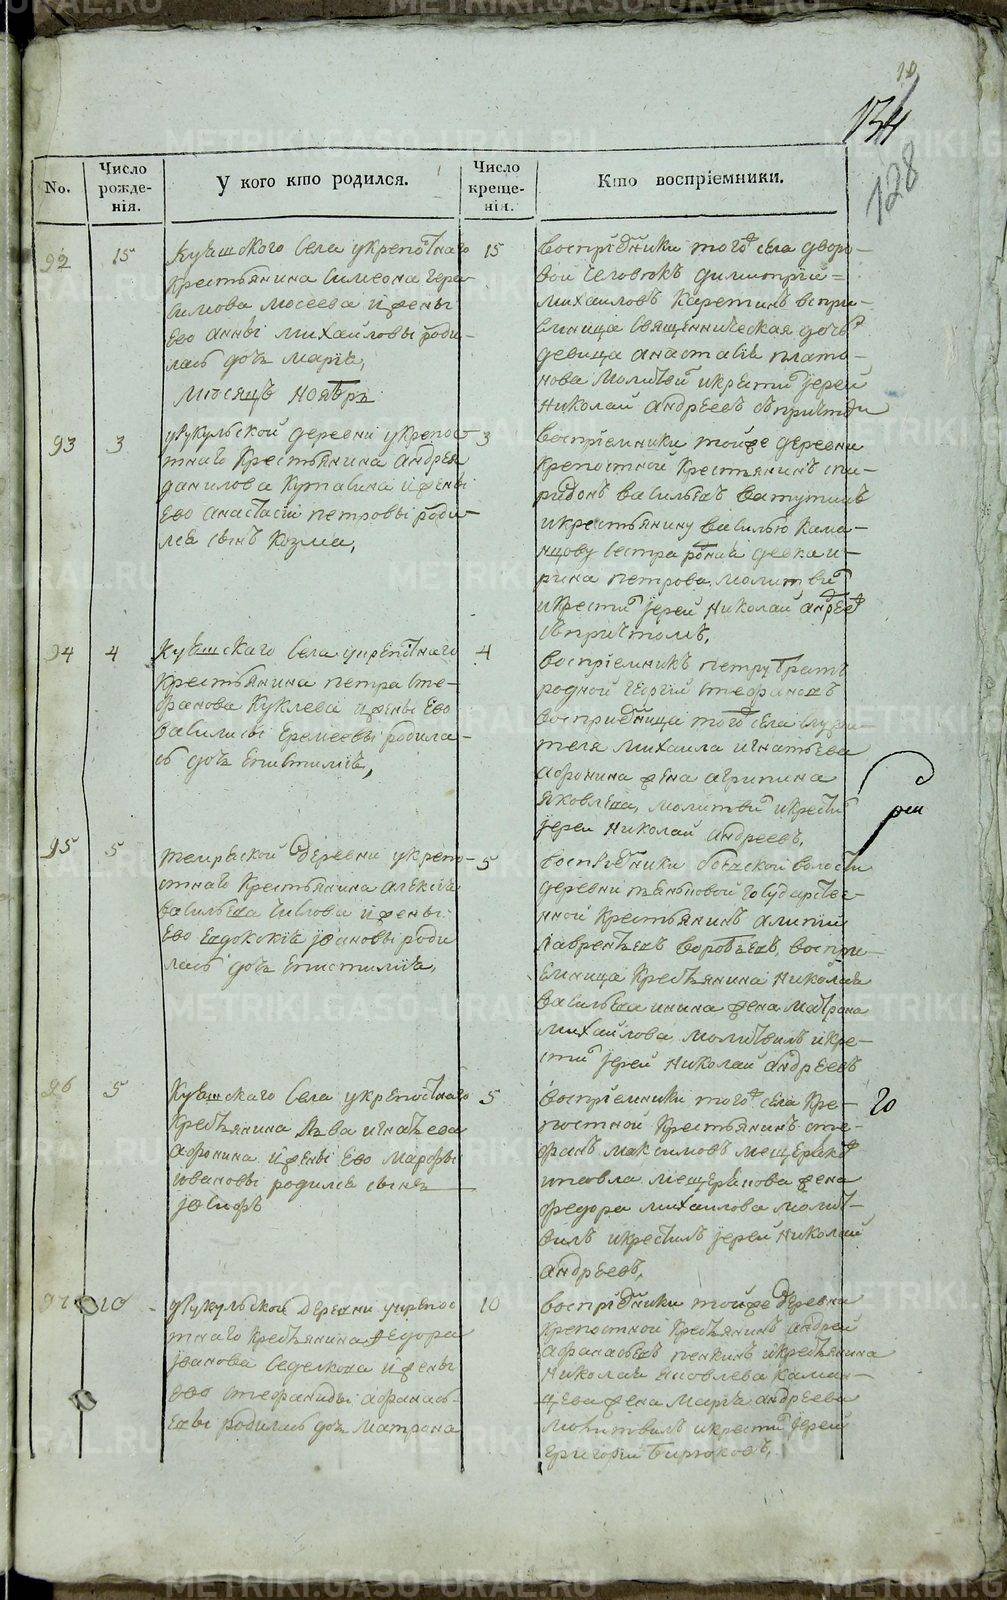 10
134
128
No.
Число рожде-нія.
У кого кто родился.
Число креще-нія.
Кто воспріемники.
92
15
Куяшского села укрепостнаго
крестьянина Симеона Гера-
симова Мосеева и жены
Ево Анны Михайловы роди-
лась дочь Марія,
15
воспріемники того села дворо-
вой человѣкъ Димитрій =
Михаиловъ Каретинъ воспри-
емница священническая дочь
девица Анастасія Плато-
нова Молитвил и крестил іерей
Николай Андреевъ съ причтом
Мѣсяцъ Ноябрь
93
3
деревни укрепос-
тнаго Крестьянина Андрея
Данилова Кутавина и жены
Ево Анастасіи Петровы роди-
лся сынъ Козма,
3
воспріемники тойже деревни
крепостной Крестьянинъ Спи-
ридонъ Васильевъ Ватутинъ
и крестьянину Василью Кама-
нцову сестра родная девка И-
рина Петрова, молитвил
и крестил іерей Николай Андреев
съ причтомъ,
94
4
Куяшскаго села укрепостнаго
крестьянина Петра Сте-
фанова Куклева и жены Ево
Василисы Еремеевы родила-
сь дочь Епистимія,
4
воспріемникъ Петру братъ
родной Георгій Стефановъ
восприемница того села служи-
теля Михаила Игнатьева
Афонина жена Агрипина
Яковлева, молитвил и крестил
іереи Николай Андреевъ,
95
5
деревни укрепо-
стнаго Крестьянина Алексія
Васильева и жены
Ево Евдококіи Іоановы роди
лась дочь Епистимія,
5
воспріемники волости
деревни Государстве-
нной Крестьянинъ
Лаврентьевъ Воробьевъ, воспри-
емница Крестьянина Николая
Васильева жена Матрона
Михайлова молитвилъ и кре-
стил іерей Николай Андреевъ
96
5
Куяшскаго села укрепостнаго
Крестьянина Льва Игнатьева
Афонина и жены Ево Марфы
Ивановы родился сынъ
Іосифъ
5
воспріемники того села Кре-
постной Крестьянинъ Сте-
фанъ Максимовъ Мещеряков
и Мещерякова жена
Федора Михаилова молит-
вилъ и крестилъ іерей Николай
Андреевъ,
97
10
деревни укрепос
тнаго Крестьянина Федора
Іванова Седелкова и жены
ево Стефаниды Афанась-
евы родилась дочь Матрона
10
воспріемники тойже деревни
крепостной Крестьянинъ Андрей
Афанасьевъ Пенкинъ и крестьянина
Николая Яковлева Каман-
цева жена Марія Андреева
Молитвилъ и крестил іерей
Григорій Бирюковъ,